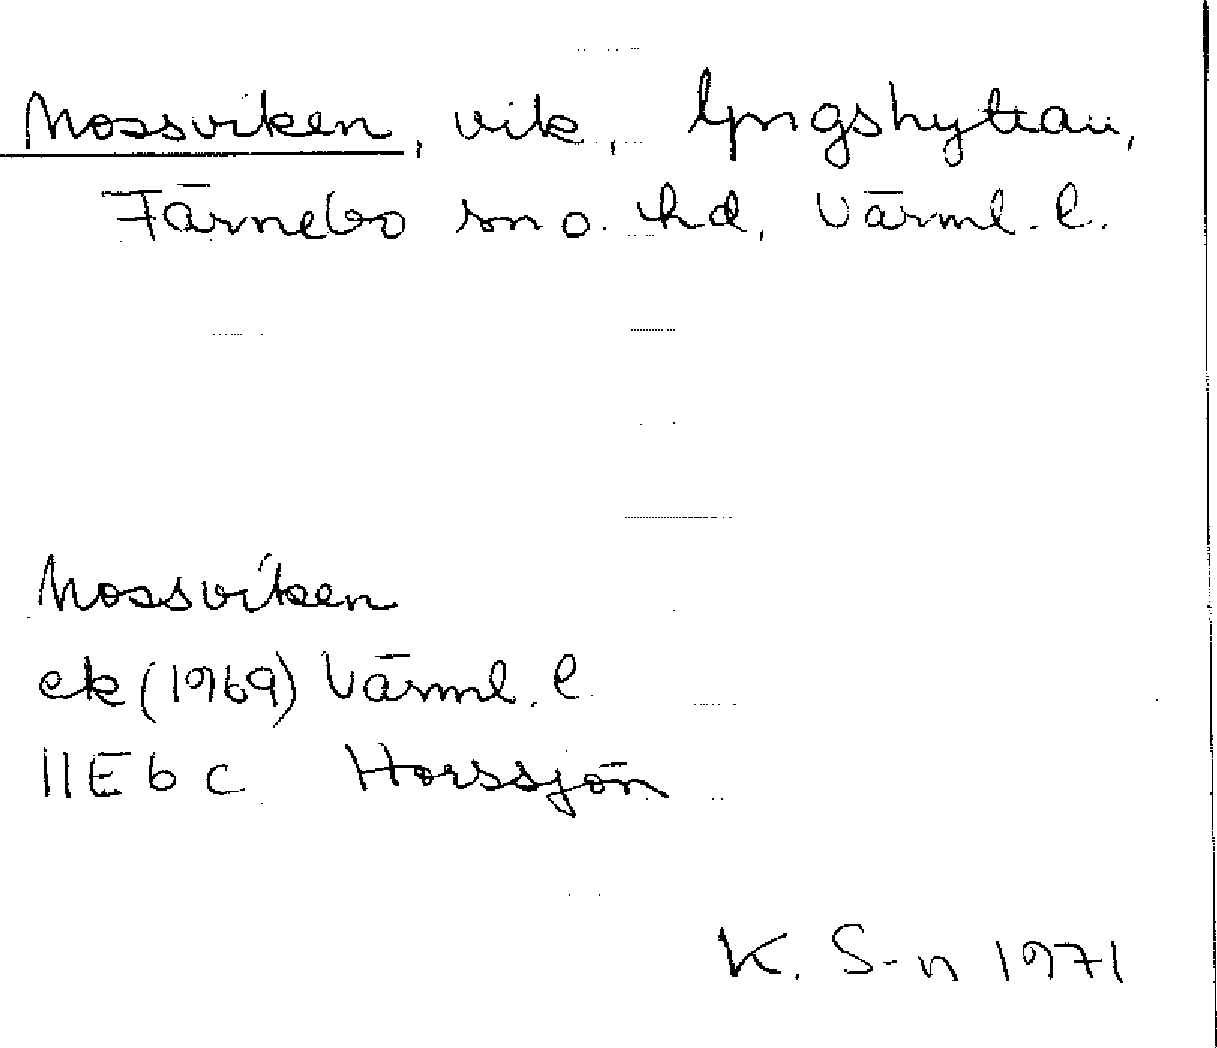 Mossviken, vik, lyngshyttan,
Färnebo sn o. hd, Värml. l.
Mossviken
ek (1969) Värml. l
11E 6 c Horssjön
K. S-n 1971